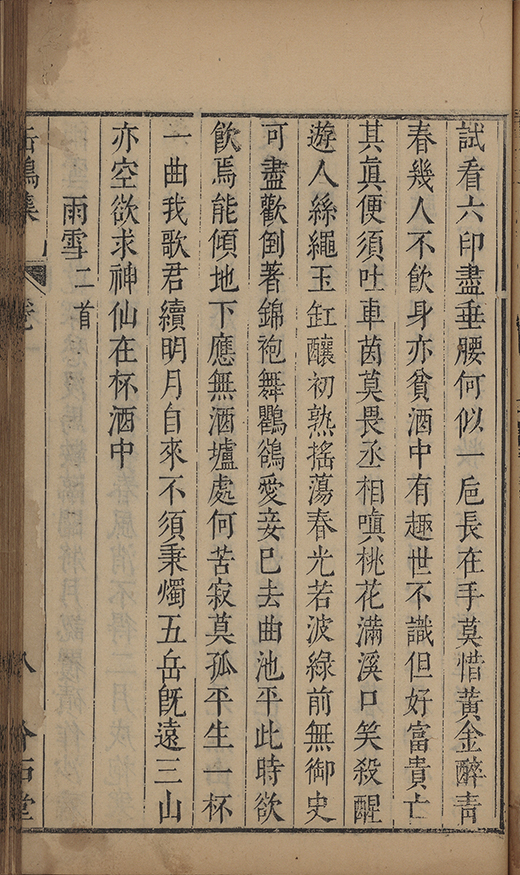 試看六印盡垂腰何似一巵長在手莫惜黃金醉青
春幾人不飮身亦貧酒中有趣世不識但好富貴亡
其眞便須吐車茵莫畏丞相嗔桃花滿溪口笑殺醒
遊人絲繩玉缸釀初熟搖蕩春光若波綠前無御史
可盡歡倒著錦袍舞鸜鵒愛妾已去曲池平此時欲
飮焉能傾地下應無酒壚處何苦寂莫孤平生一杯
一曲我歌君續明月自來不須秉燭五岳旣遠三山
亦空欲求神仙在杯酒中
雨雪二首
缶鳴集
卷一
八